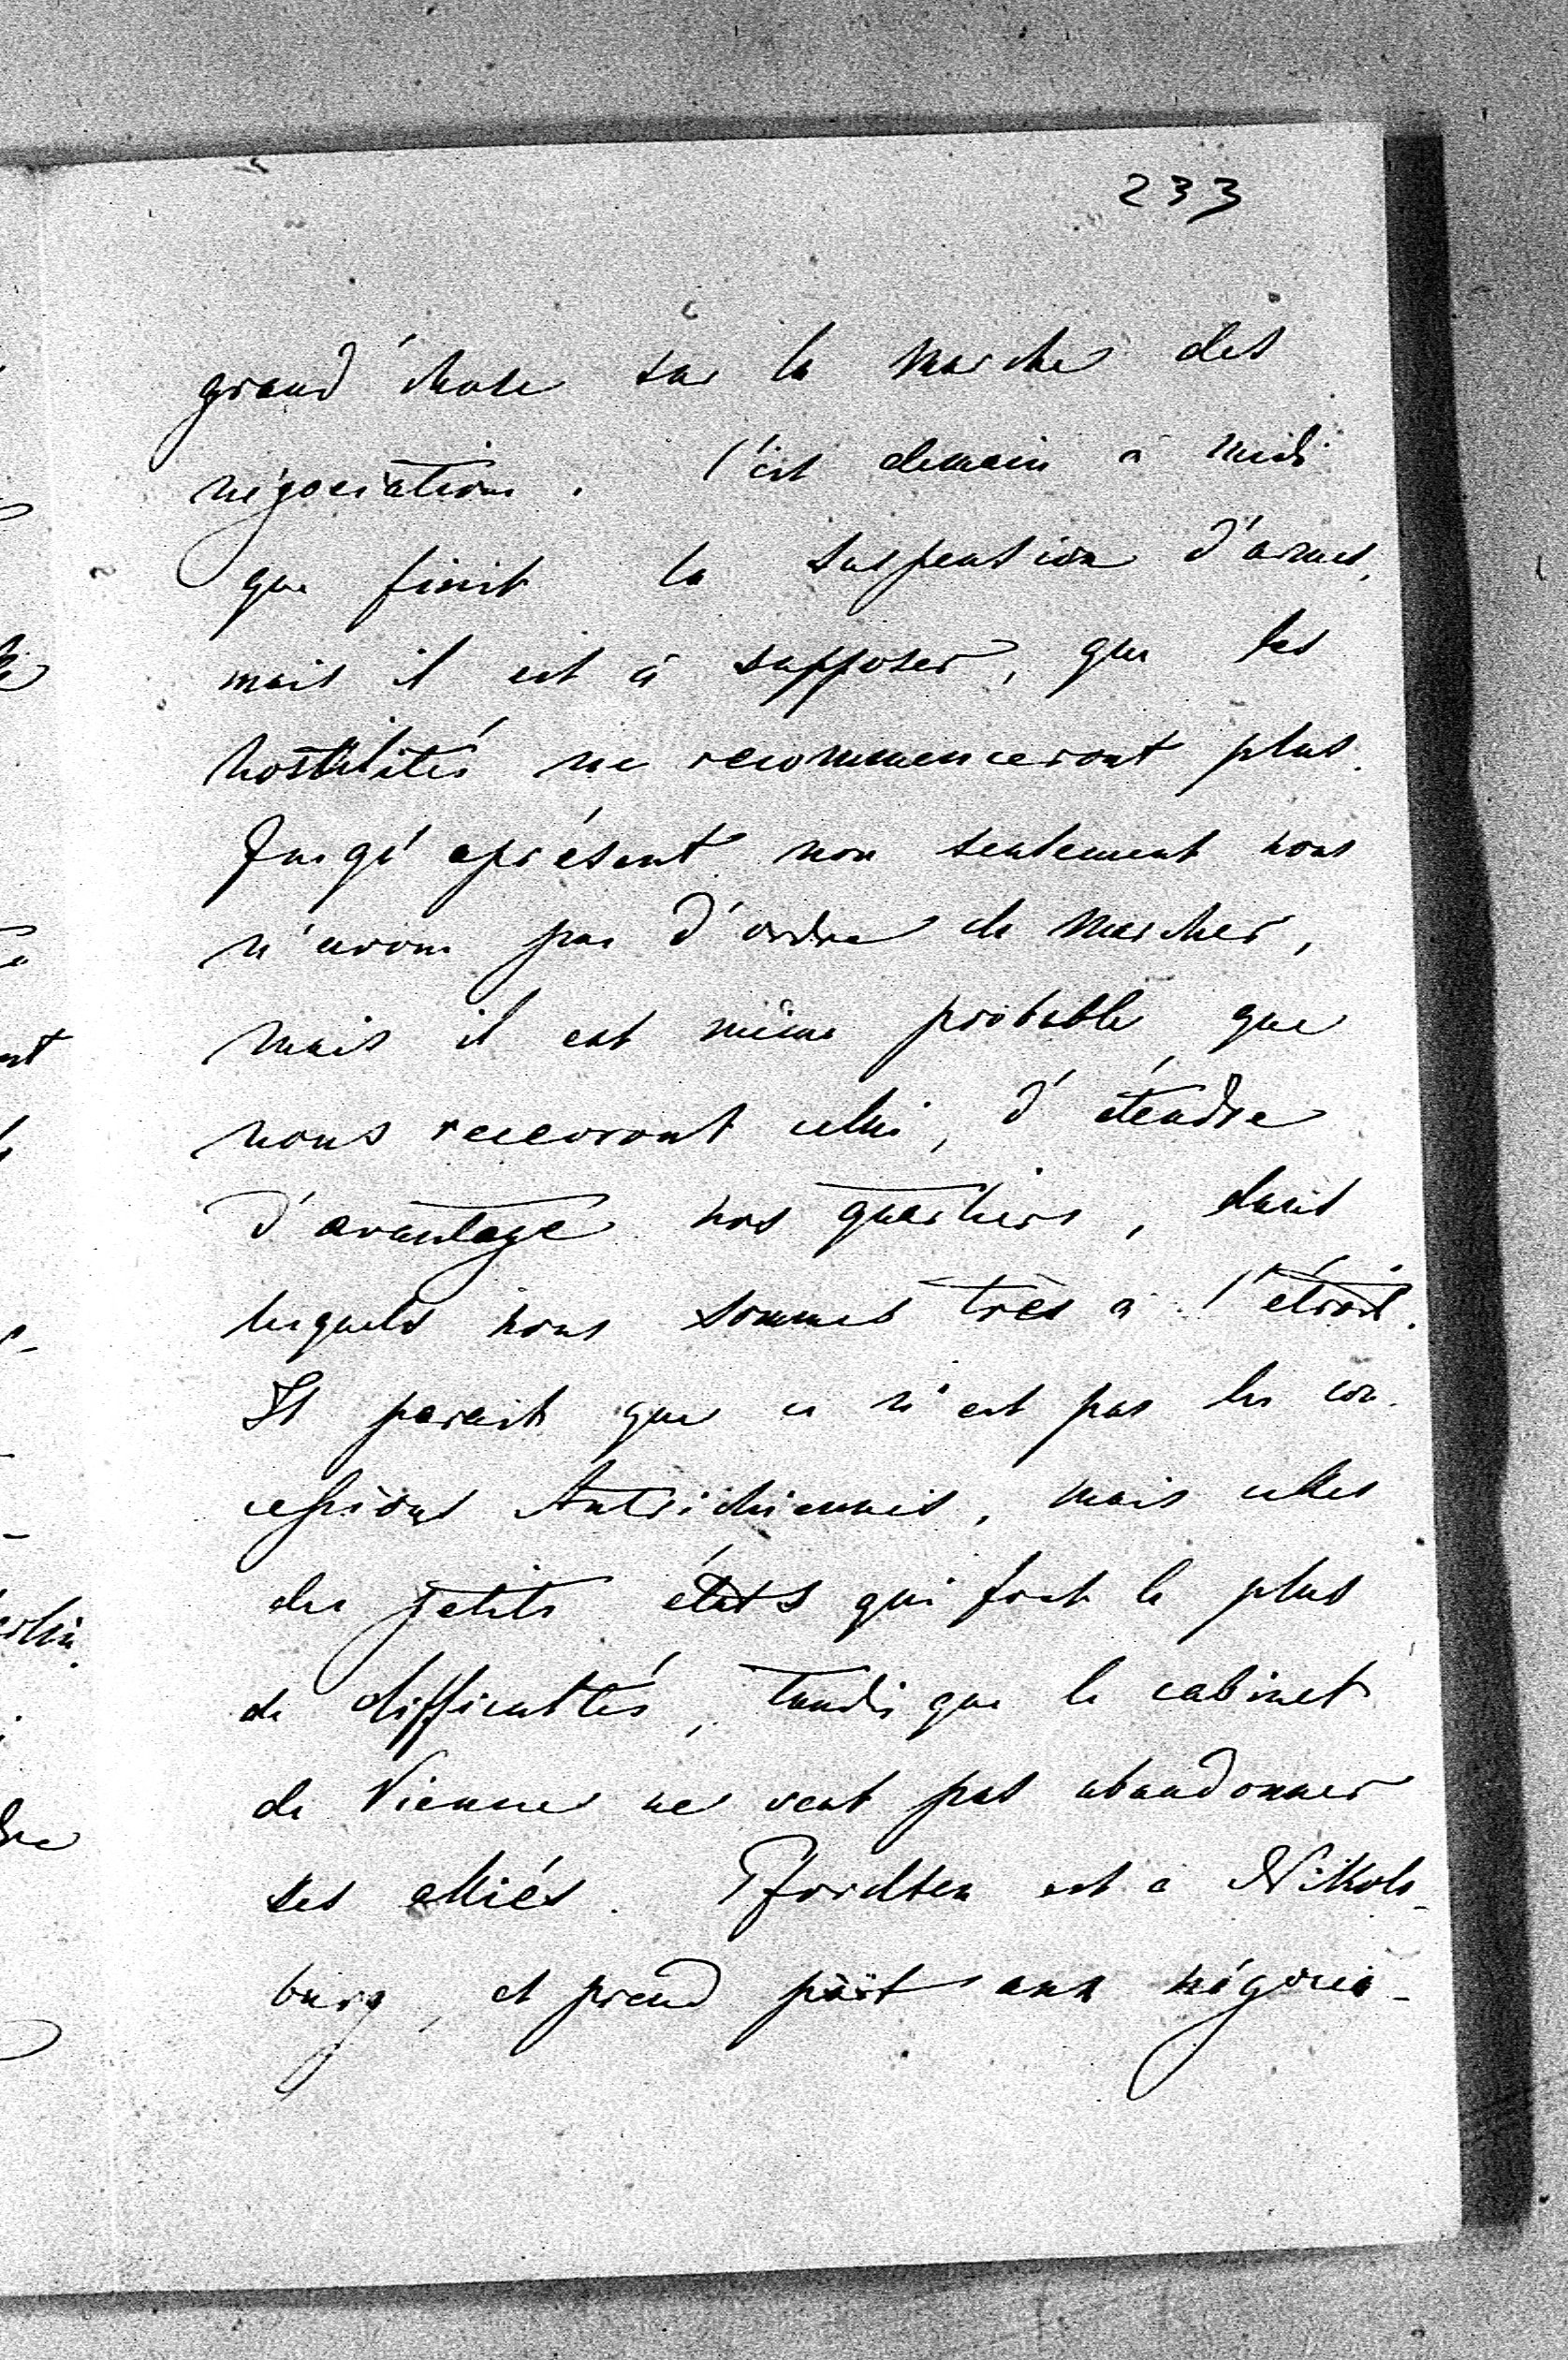 233
grand'chose sur la marche des
négociations. C'est demain à midi
que finit la suspension d'armes,
mais il est à supposer, que les
hostilités ne recommenceront plus.
Jusqu'aprésent non seulement nous
n'avons pas d'ordre de marcher,
mais il est même probable que
nous recevront celui, d'étendre
d'avantage nos quartiers, dans
lesquels nous sommes très à l'étroit.
Il parait que ce n'est pas les con-
cessions Autrichiennes, mais celles
des petits états qui font le plus
de difficultés, tandis que le cabinet
de Vienne ne veut pas abandonner
ses alliés. Pfordten est à Nikols-
burg, et prend part aux négocia-